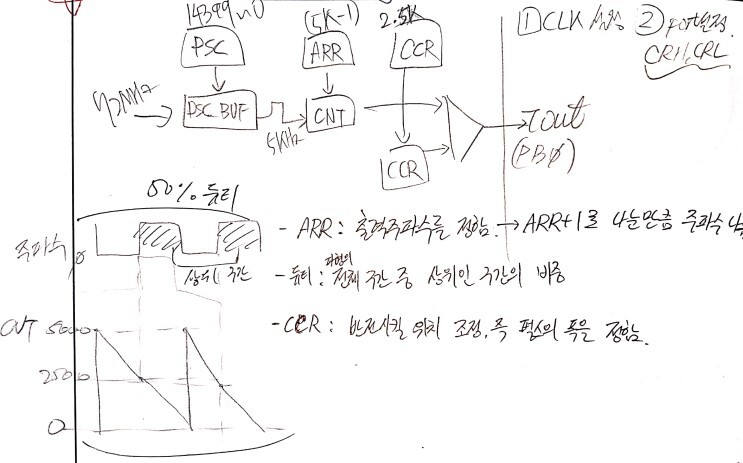 14399
(5K-1)
2.5K
① CLK 설정 ②
CRH, CRL
PSC
ARR
CCR
72MHz
PSC BUF
5KHz
CNT
CCR
Tout
(PB0)
50% 듀티
주파수
상위 구간
- ARR : 출력주파수를 정함. → ARR+1로 나눈만큼 주파수
- 듀티 : 파형의 전체 구간 중 상위인 구간의 비중
- CCR : 반전시킬 위치 조정, 즉 펄스의 폭을 정함.
CNT 5000
2500
0